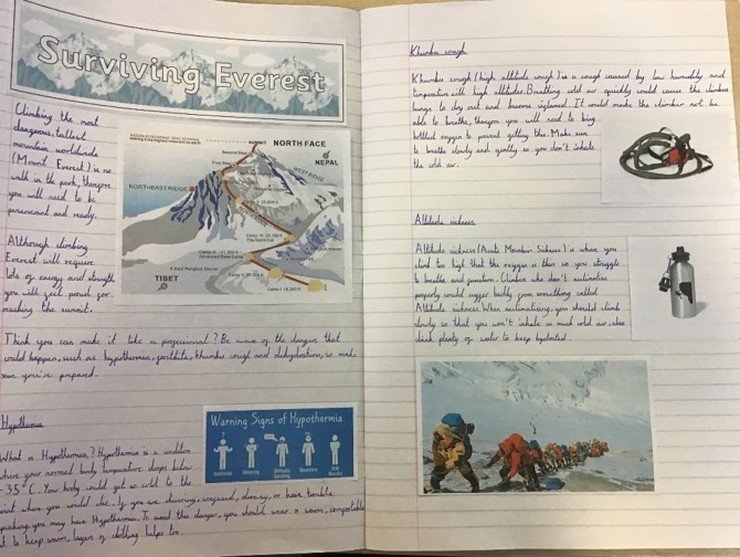 Surviving Everest
Climbing the most
dangerous, tallest
mountain worldwide
(Mount Everest) is no
walk in the park, therefore
you will need to be
and ready.
Although climbing
Everest will require
lots of energy and strength,
you will feel proud for
reaching the summit.
SUMMIT
NORTH FACE
NEPAL
WEST RIDGE
NORTHEAST RIDGE
Advanced Base Camp
East Rongbuk Glacier
TIBET
Think you can make it like a professional? Be aware of the dangers that
could happen, such as hypothermia, frostbite, khumbu cough and dehydration, so make
sure you're prepared.
Hypothermia
Warning Signs of Hypothermia
Confusion
Shivering
Difficulty Speaking
Sleepiness
Stiff Muscles
What is Hypothermia? Hypothermia is a condition
where your normal body temperature drops below
35°C. Your body could get so cold to the
point where you would die. If you are shivering, confused, drowsy, or have trouble
speaking you may have Hypothermia. To avoid this danger, you should wear a warm, comfortable
to keep warm, layers of clothing helps too.
Khumbu cough
Khumbu cough (high altitude cough) is a cough caused by low humidity and
temperature with high altitudes. Breathing cold air quickly could cause the climbers
lungs to dry out and become inflamed. It would make the climber not be
able to breathe, therefore you will need to bring
bottled oxygen to prevent getting this. Make sure
to breathe slowly and gently so you don't inhale
the cold air.
Altitude sickness
Altitude sickness (Acute Mountain Sickness) is where you
climb too high that the oxygen is thin so you struggle
to breathe and function. Climbers who don't acclimatise
properly could suffer badly from something called
Altitude sickness. When acclimatising, you should climb
slowly so that you won't inhale as much cold air, also
drink plenty of water to keep hydrated.